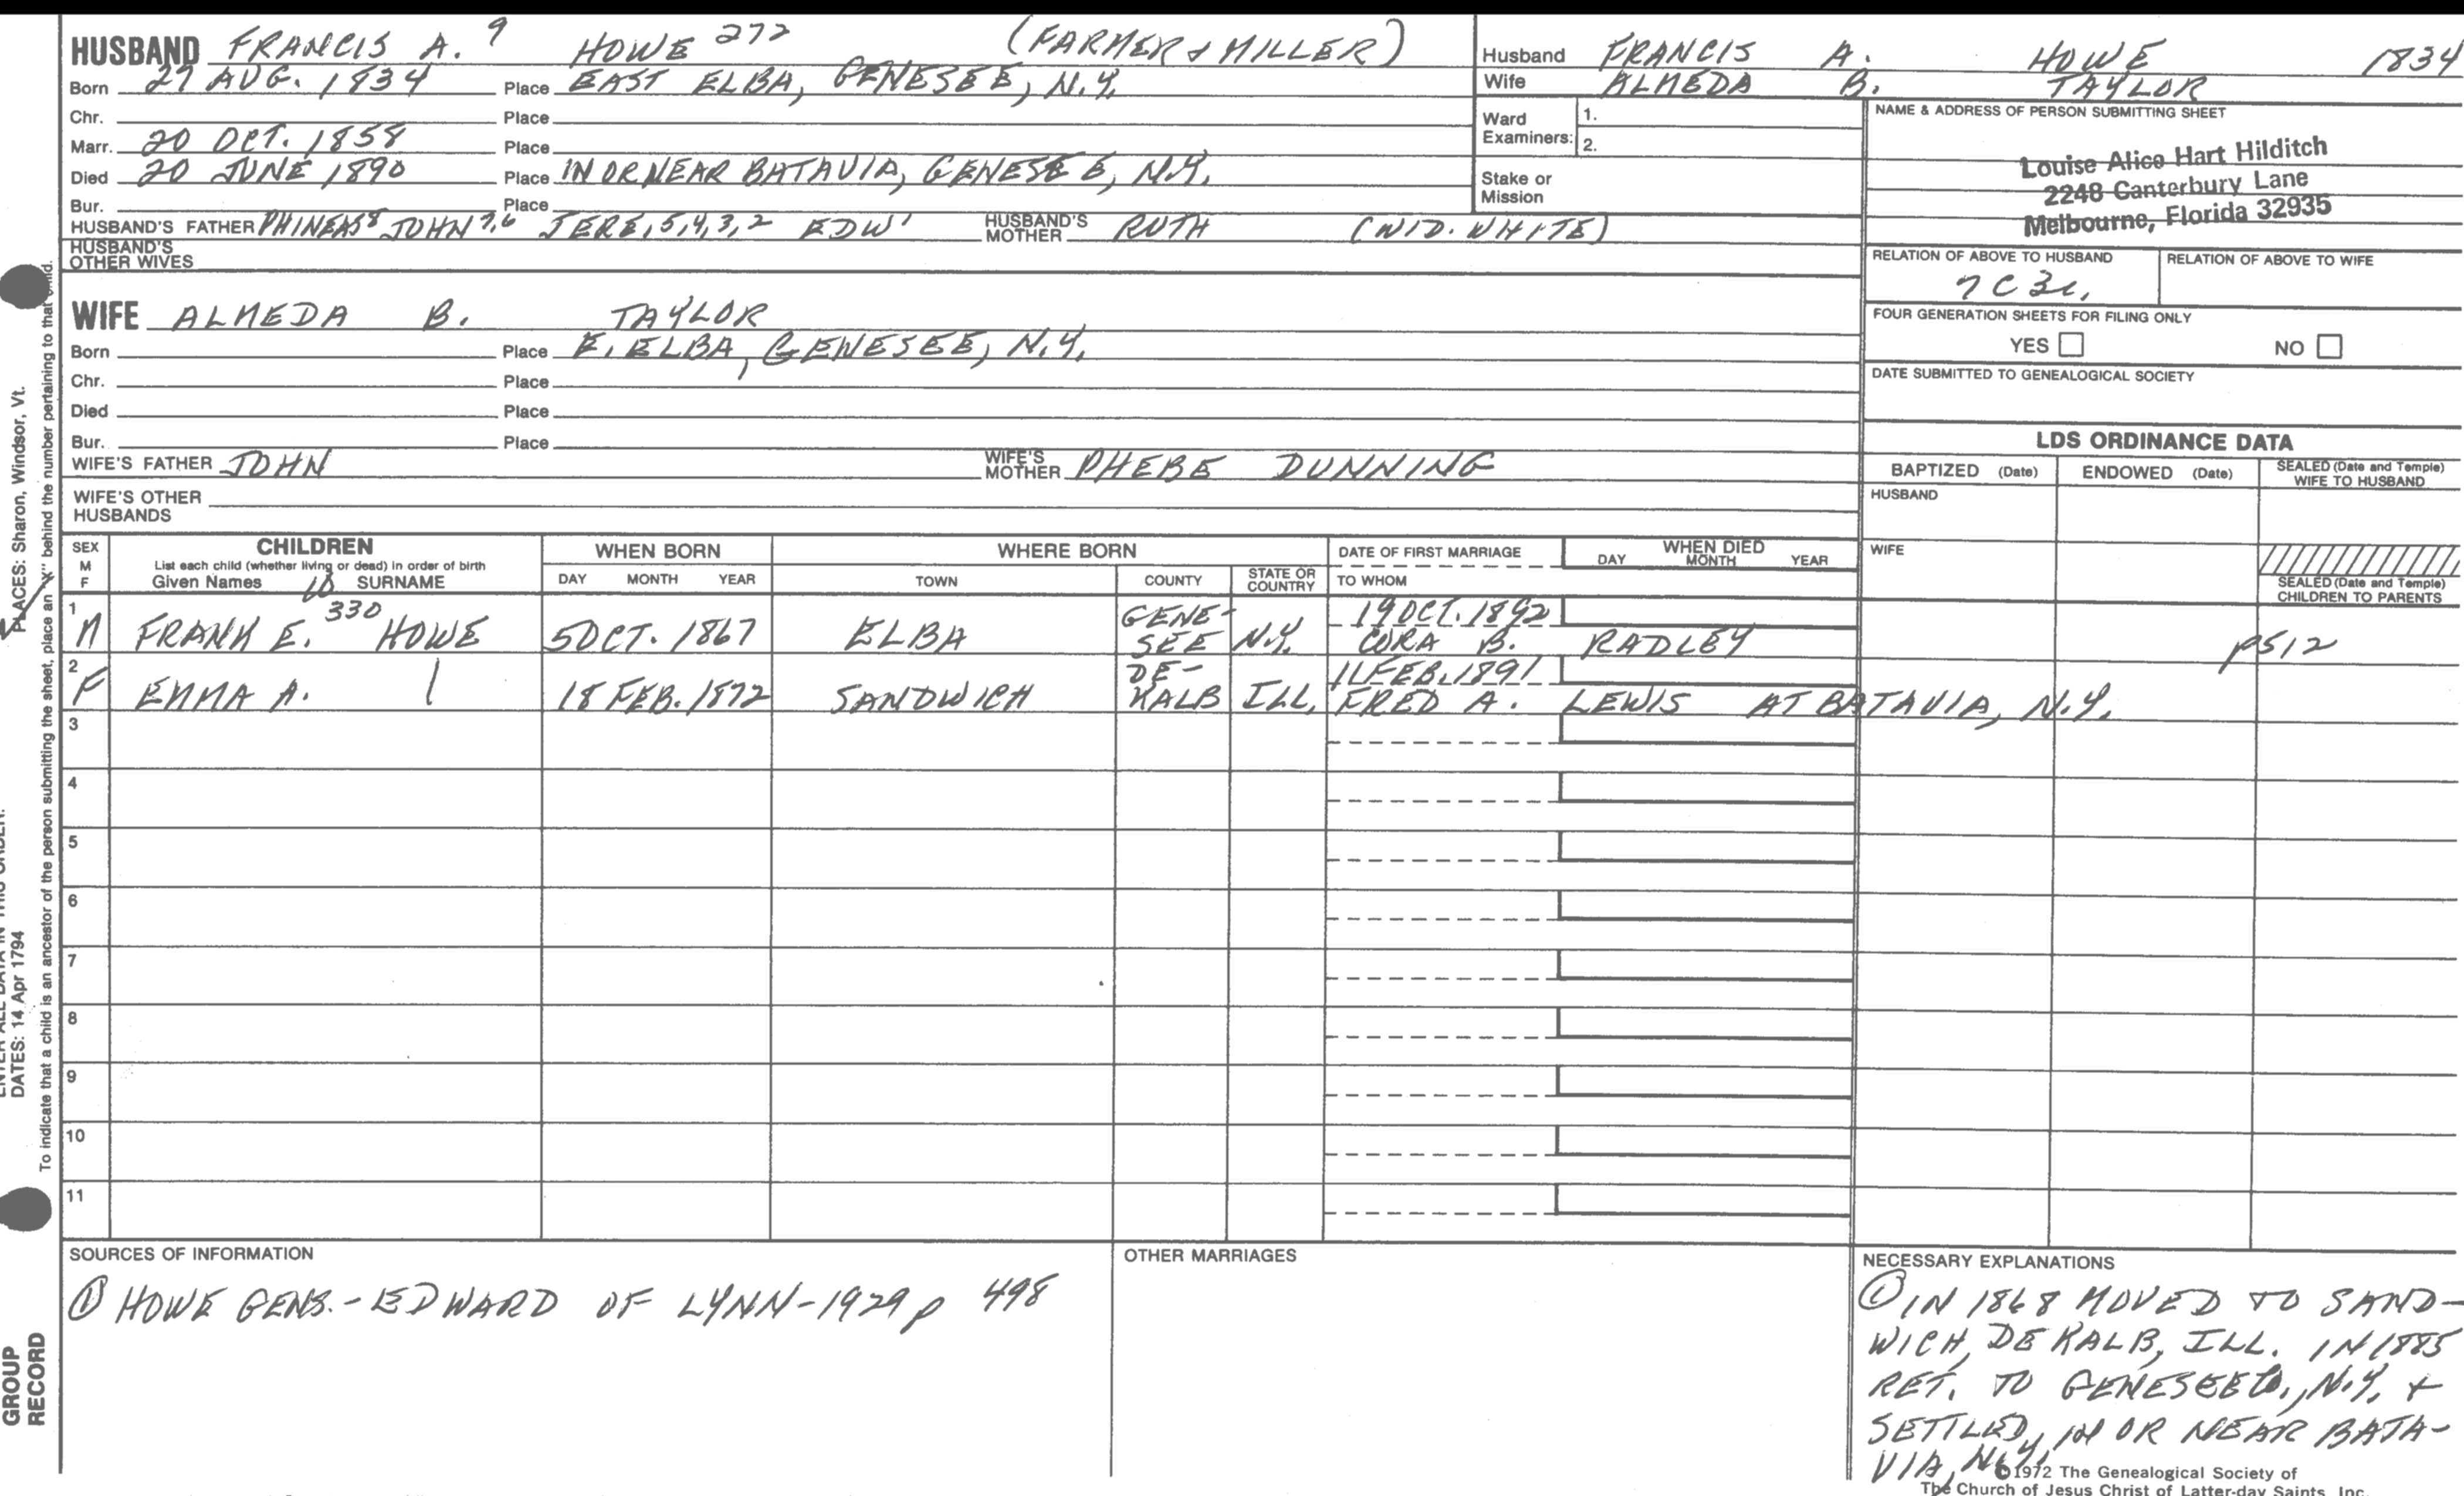 HUSBAND FRANCIS A. 9 HOWE 272 (FARMER & MILLER)
Born 27 AUG. 1834 Place EAST ELBA, GENESEE, N.Y.
Chr. Place
Marr. 20 OCT. 1858 Place
Died 20 JUNE 1890 Place IN OR NEAR BATAVIA, GENESEE, N.Y.
Bur. Place
HUSBAND'S FATHER PHINEAS 8 JOHN 7,6 JERE, 5,4,3,2 EDW 1 HUSBAND'S MOTHER RUTH (WID. WHITE)
HUSBAND'S OTHER WIVES
WIFE ALMEDA B. TAYLOR
Born Place E. ELBA, GENESEE, N.Y.
Chr. Place
Died Place
Bur. Place
WIFE'S FATHER JOHN WIFE'S MOTHER PHEBE DUNNING
WIFE'S OTHER HUSBANDS
Husband FRANCIS A. HOWE 1834
Wife ALMEDA B. TAYLOR
Ward Examiners: 1.
2.
Stake or Mission
NAME & ADDRESS OF PERSON SUBMITTING SHEET
Louise Alice Hart Hilditch
2248 Canterbury Lane
Melbourne, Florida 32935
RELATION OF ABOVE TO HUSBAND RELATION OF ABOVE TO WIFE
7C3r.
FOUR GENERATION SHEETS FOR FILING ONLY
YES NO
DATE SUBMITTED TO GENEALOGICAL SOCIETY
LDS ORDINANCE DATA
BAPTIZED (Date) ENDOWED (Date) SEALED (Date and Temple) WIFE TO HUSBAND
HUSBAND
WIFE
SEALED (Date and Temple) CHILDREN TO PARENTS
SEX M F
CHILDREN
List each child (whether living or dead) in order of birth
Given Names 10 SURNAME
WHEN BORN
DAY MONTH YEAR
WHERE BORN
TOWN COUNTY STATE OR COUNTRY
DATE OF FIRST MARRIAGE
TO WHOM
WHEN DIED
DAY MONTH YEAR
1 M FRANK E. 330 HOWE 5 OCT. 1867 ELBA GENE-SEE N.Y. 19 OCT. 1892 CORA B. RADLEY p512
2 F EMMA A. 18 FEB. 1872 SANDWICH DE-KALB ILL. 11 FEB. 1891 FRED A. LEWIS AT BATAVIA, N.Y.
3
4
5
6
7
8
9
10
11
SOURCES OF INFORMATION
① HOWE GENS. - EDWARD OF LYNN-1929 p 498
OTHER MARRIAGES
NECESSARY EXPLANATIONS
① IN 1868 MOVED TO SAND-
WICH, DE KALB, ILL. IN 1885
RET. TO GENESEE CO., N.Y. +
SETTLED IN OR NEAR BATA-
VIA, N.Y.
©1972 The Genealogical Society of
The Church of Jesus Christ of Latter-day Saints, Inc.
PLACES: Sharon, Windsor, Vt.
DATES: 14 Apr 1794
To indicate that a child is an ancestor of the person submitting the sheet, place an "X" behind the number pertaining to that child.
GROUP
RECORD